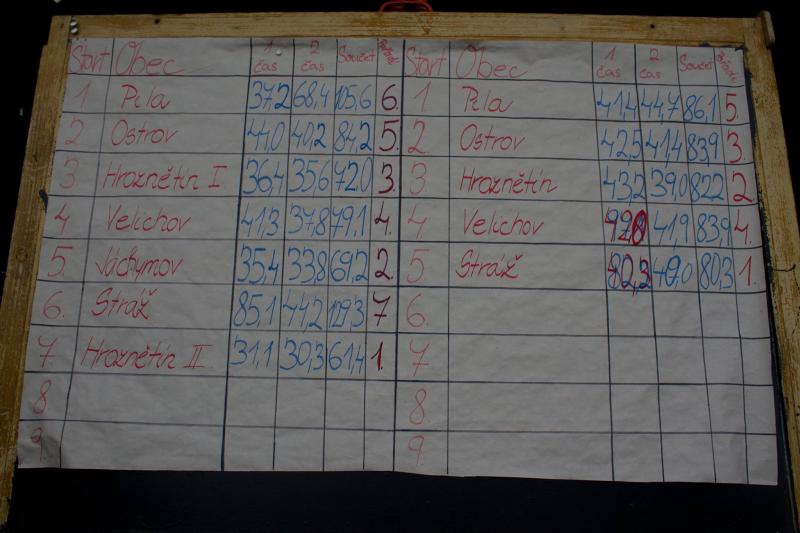 Start Obec 1 čas 2 čas Součet Pořadí Start Obec 1 čas 2 čas Součet Pořadí
1 Pila 37,2 68,4 105,6 6. 1 Pila 41,4 44,7 86,1 5.
2 Ostrov 44,0 40,2 84,2 5. 2 Ostrov 42,5 41,4 83,9 3.
3. Hroznětín I 36,4 35,6 72,0 3. 3 Hroznětín 43,2 39,0 82,2 2.
4 Velichov 41,3 37,8 79,1 4. 4 Velichov 41,9 83,9 4.
5. Jáchymov 35,4 33,8 69,2 2. 5. Stráž 40,0 80,3 1.
6. Stráž 85,1 44,2 129,3 7 6.
7. Hroznětín II 31,1 30,3 61,4 1. 7
8 8
9. 9.